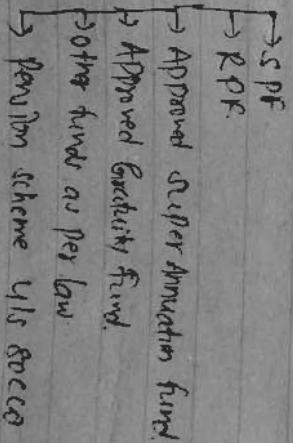 → SPF
→ RPF.
→ Approved super Annuation fund
→ Approved Gratuity fund.
→ other funds as per law
→ pension scheme u/s 80CCD